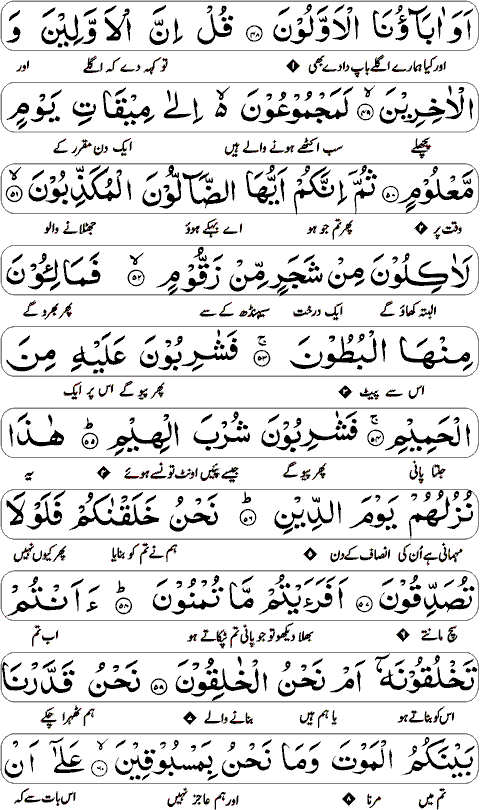 اَوَاٰبَآؤُنَا الْاَوَّلُوْنَ ﴿۴۸﴾ قُلْ اِنَّ الْاَوَّلِیْنَ وَ
اور کیا ہمارے اگلے باپ دادے بھی تو کہہ دے کہ اگلے اور
الْاٰخِرِیْنَ ﴿۴۹﴾ لَمَجْمُوْعُوْنَ ۙ۬ اِلٰی مِیْقَاتِ یَوْمٍ
پچھلے سب اکٹھے ہونے والے ہیں ایک دن مقرر کے
مَّعْلُوْمٍ ﴿۵۰﴾ ثُمَّ اِنَّکُمْ اَیُّهَا الضَّآلُّوْنَ الْمُکَذِّبُوْنَ ﴿۵۱﴾
وقت پر پھر تم جو ہو اے بہکے ہوؤ جھٹلانے والو
لَاٰکِلُوْنَ مِنْ شَجَرٍ مِّنْ زَقُّوْمٍ ﴿۵۲﴾ فَمَالِـُٔوْنَ
البتہ کھاؤ گے ایک درخت سیہنڈھ کے سے پھر بھرو گے
مِنْهَا الْبُطُوْنَ ﴿۵۳﴾ فَشٰرِبُوْنَ عَلَیْهِ مِنَ
اس سے پیٹ پھر پیو گے اس پر ایک
الْحَمِیْمِ ﴿۵۴﴾ فَشٰرِبُوْنَ شُرْبَ الْهِیْمِ ﴿۵۵﴾ هٰذَا
جلتا پانی پھر پیو گے جیسے پئیں اونٹ تونسے ہوئے یہ
نُزُلُهُمْ یَوْمَ الدِّیْنِ ﴿۵۶﴾ نَحْنُ خَلَقْنٰکُمْ فَلَوْلَا
مہمانی ہے اُن کی انصاف کے دن ہم نے تم کو بنایا پھر کیوں نہیں
تُصَدِّقُوْنَ ﴿۵۷﴾ اَفَرَءَیْتُمْ مَّا تُمْنُوْنَ ﴿۵۸﴾ ءَاَنْتُمْ
سچ مانتے بھلا دیکھو تو جو پانی تم ٹپکاتے ہو اب تم
تَخْلُقُوْنَهٗۤ اَمْ نَحْنُ الْخٰلِقُوْنَ ﴿۵۹﴾ نَحْنُ قَدَّرْنَا
اس کو بناتے ہو یا ہم ہیں بنانے والے ہم ٹھہرا چکے
بَیْنَکُمُ الْمَوْتَ وَمَا نَحْنُ بِمَسْبُوْقِیْنَ ﴿۶۰﴾ عَلٰۤی اَنْ
تم میں مرنا اور ہم عاجز نہیں اس بات سے کہ